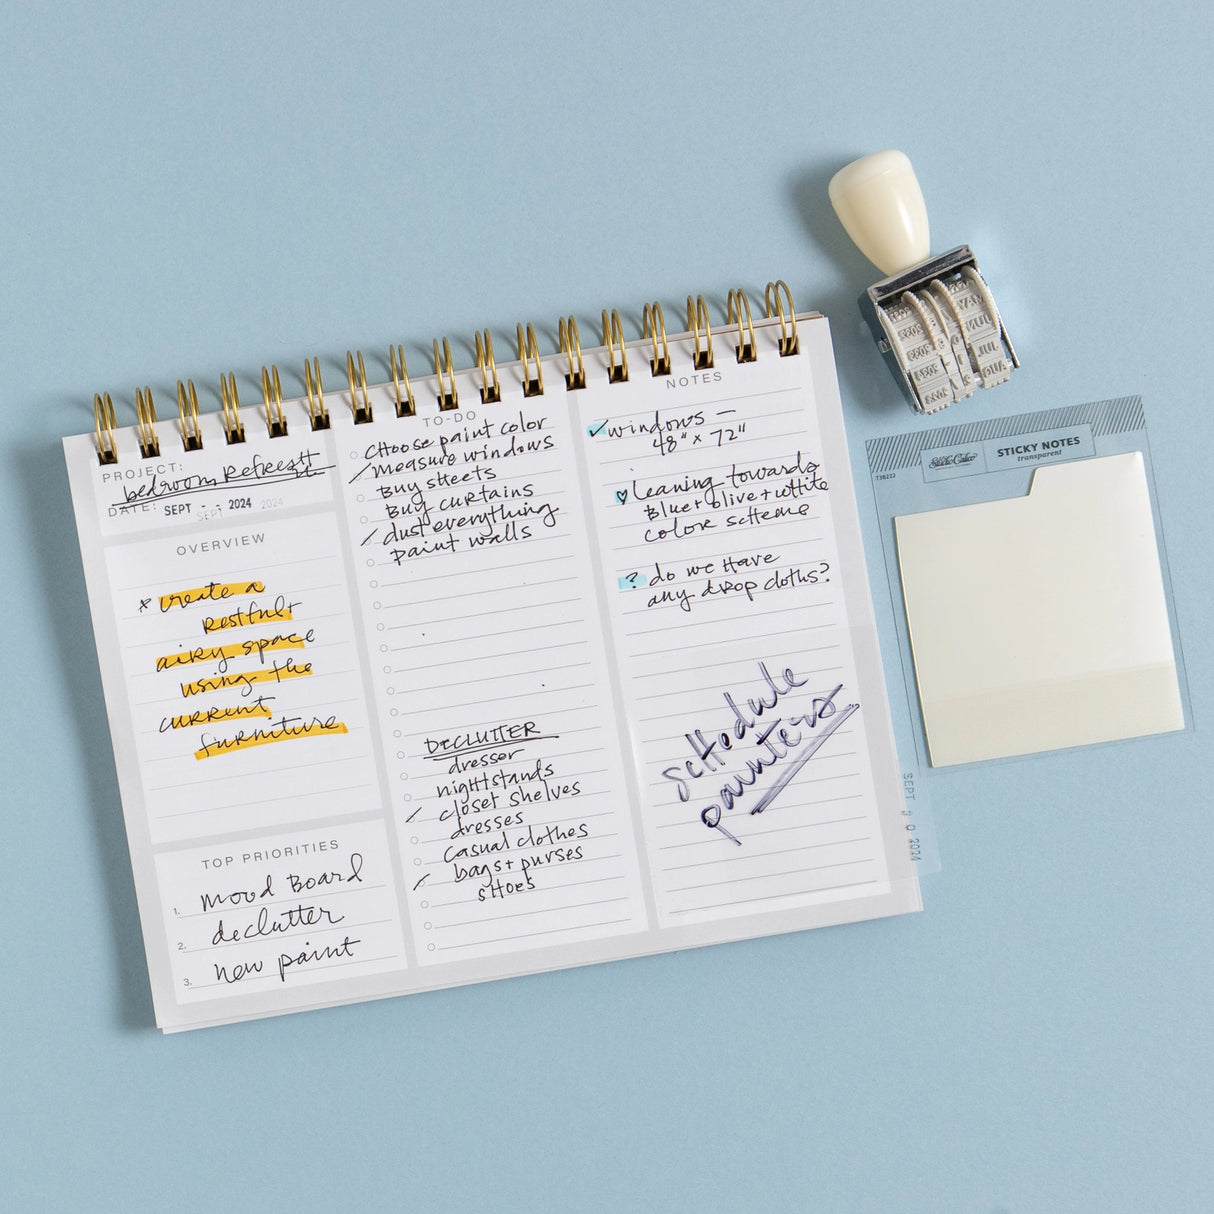 PROJECT:
bedroom Refresh
DATE: SEPT 2024
SEPT 2024
OVERVIEW
* create a
restful +
airy space
using the
current
furniture
TOP PRIORITIES
1. mood Board
2. declutter
3. new paint
TO-DO
Choose paint color
measure windows
Buy sheets
Buy curtains
dust everything
paint walls
DECLUTTER
dresser
nightstands
closet shelves
dresses
casual clothes
bags + purses
shoes
NOTES
✓ windows —
48" x 72"
♡ leaning towards
Blue + olive + white
color scheme
? do we have
any drop cloths?
schedule
painters
SEPT 2024
Studio Calico
STICKY NOTES
transparent
T38222
JUL